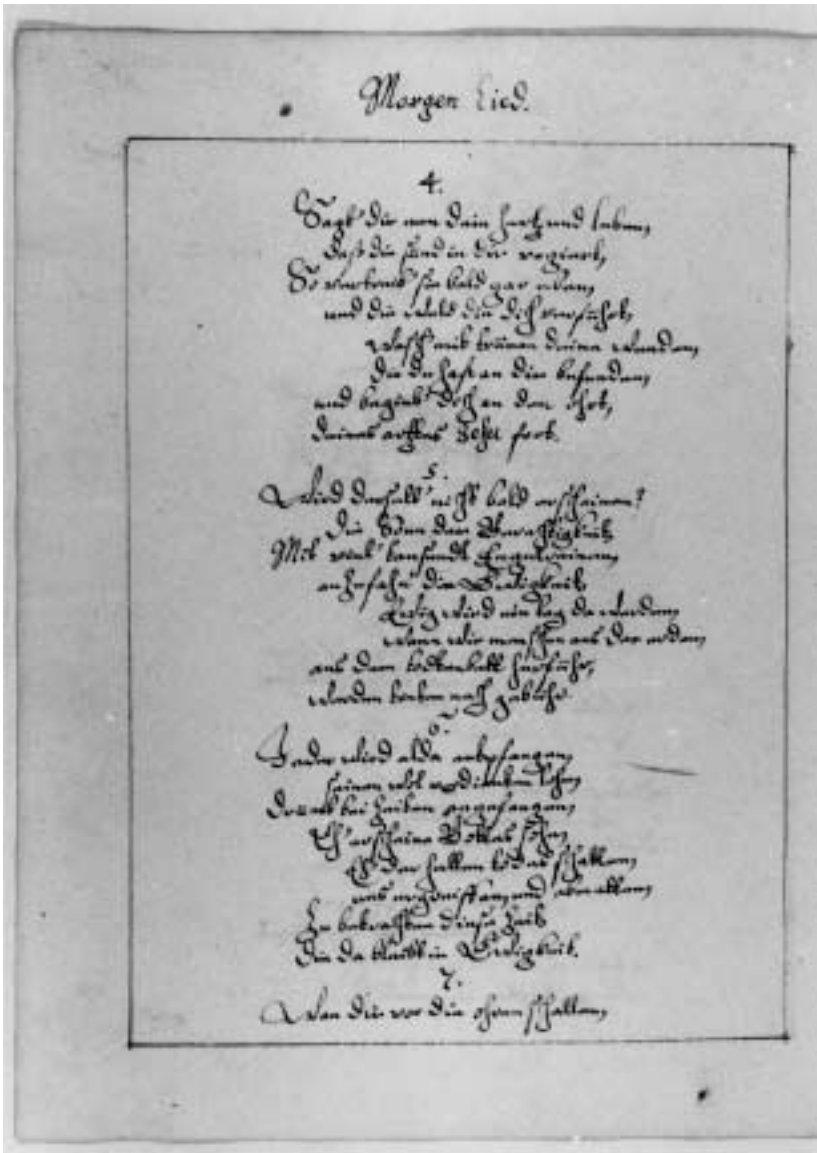 Morgen Lied.
4.
Sagt dir nun dein hertz und leben,
daß die sünd in dir regiert,
So vertreib sie bald gar eben,
und die Welt die dich verführt,
Wasch mit tränen deine Wunden,
die du hast an dir befunden,
und begieb dich an den Ohrt,
deines Gottes fort.
5.
Wird deshalb nicht bald erscheinen?
die Sonn der Gerechtigkeit,
Mit viel tausendt
die Ewigkeit,
Ewig wird ein tag da werden,
Wann wir menschen aus der erden,
aus dem todtenbett herführ,
werden treten nach gebühr.
6.
Jeder wird alda entpfangen,
seinen wol verdienten lohn,
drümb bei zeiten angefangen,
Eh' erscheine Gottes sohn,
Eh' der hellen todes schatten,
uns ergreiffen, und
Zu betrachten diese zeit,
die da bleibt in Ewigkeit.
7.
Wan dir vor die ohren schallen,